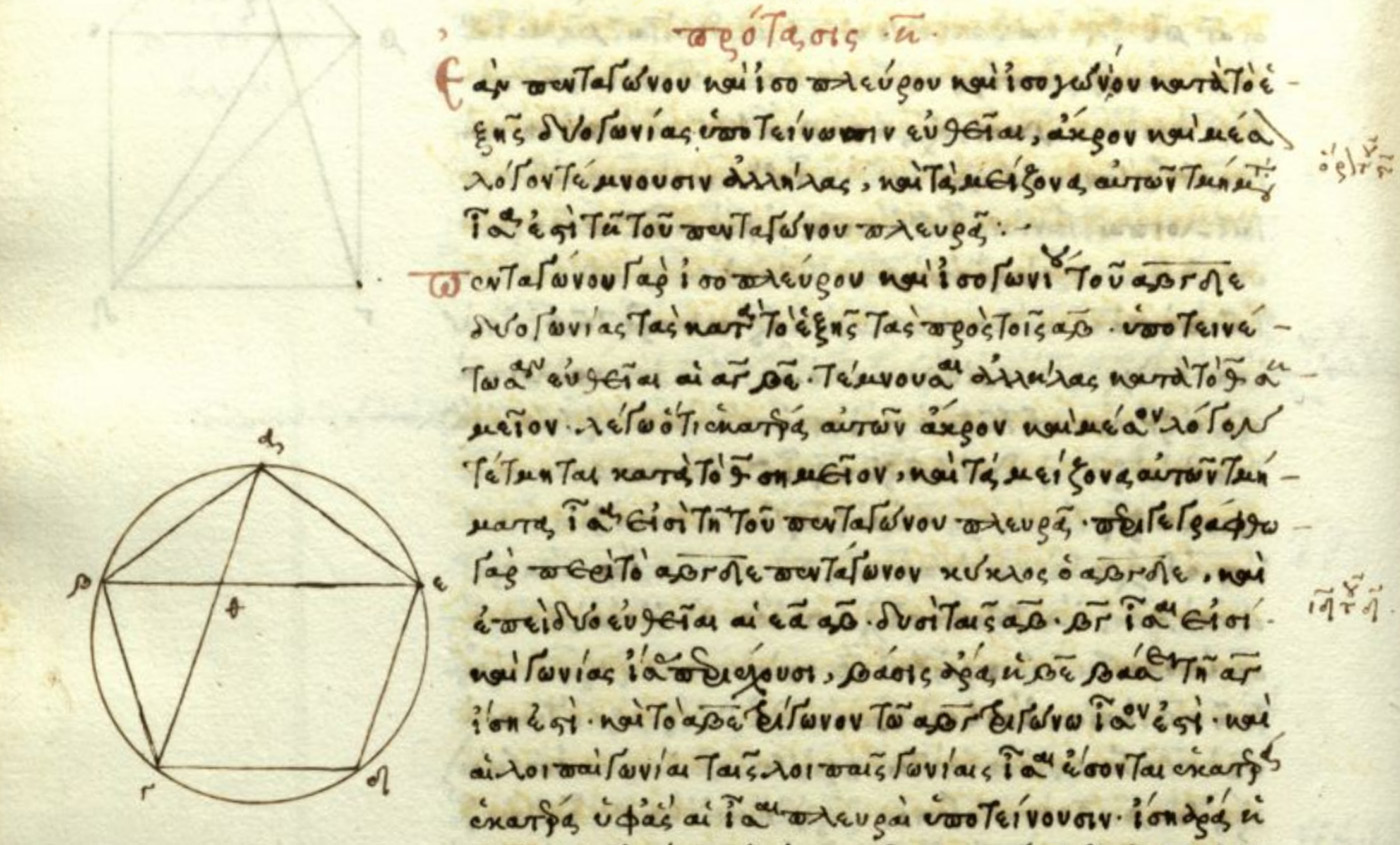 πρότασις ·η̄·
Ἐὰν πενταγώνου καὶ ἰσοπλεύρου καὶ ἰσογωνίου κατὰ τὸ ἑ-
ξῆς δύο γωνίας ὑποτείνωσιν εὐθεῖαι, ἄκρον καὶ μέσ
λόγον τέμνουσιν ἀλλήλας, καὶ τὰ μείζονα αὐτῶν τμήμτ
ἴσα ἐστὶ τῇ τοῦ πενταγώνου πλευρᾷ :·-
πενταγώνου γὰρ ἰσοπλεύρου καὶ ἰσογωνίου τοῦ αβγδε
δύο γωνίας τὰς κατὰ τὸ ἑξῆς τὰς πρὸς τοῖς αβ · ὑποτεινέ-
τωσαν εὐθεῖαι αἱ αγ βε · τέμνουσαι ἀλλήλας κατὰ τὸ θ ση-
μεῖον · λέγω ὅτι ἑκατέρα αὐτῶν ἄκρον καὶ μέσον λόγον
τέτμηται κατὰ τὸ θ σημεῖον, καὶ τὰ μείζονα αὐτῶν τμή-
ματα ἴσα εἰσὶ τῇ τοῦ πενταγώνου πλευρᾷ · περιγεγράφθω-
γὰρ περὶ τὸ αβγδε πεντάγωνον κύκλος ὁ αβγδε, καὶ
ἐπεὶ δύο εὐθεῖαι αἱ εα αβ · δυσὶ ταῖς αβ · βγ ἴσαι εἰσί ·
καὶ γωνίας ἴσας περιέχουσι, βάσις ἄρα ἡ βε βάσει τῇ αγ
ἴση ἐστί · καὶ τὸ αβε τρίγωνον τῷ αβγ τριγώνω ἴσον ἐστί · καὶ
αἱ λοιπαὶ γωνίαι ταῖς λοιπαῖς γωνίαις ἴσαι ἔσονται ἑκατέρα
ἑκατέρα ὑφ' ἃς αἱ ἴσαι πλευραὶ ὑποτείνουσιν · ἴση ἄρα ἡ
α
β
ε
θ
γ
δ